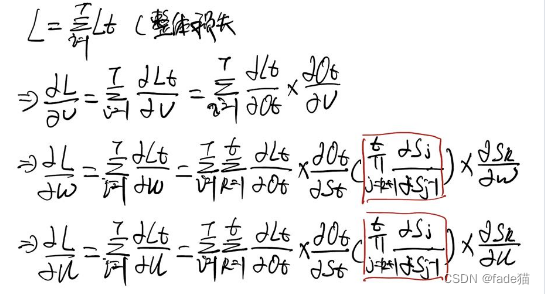 L = \sum_{i=1}^{T} L_t （整体损失
⇒ \frac{∂L}{∂V} = \sum_{i=1}^{T} \frac{∂L_t}{∂V} = \sum_{i=1}^{T} \frac{∂L_t}{∂O_t} × \frac{∂O_t}{∂V}
⇒ \frac{∂L}{∂W} = \sum_{i=1}^{T} \frac{∂L_t}{∂W} = \sum_{i=1}^{T} \sum_{k=1}^{t} \frac{∂L_t}{∂O_t} × \frac{∂O_t}{∂S_t} ( \prod_{j=k+1}^{t} \frac{∂S_j}{∂S_{j-1}} ) × \frac{∂S_k}{∂W}
⇒ \frac{∂L}{∂U} = \sum_{i=1}^{T} \frac{∂L_t}{∂U} = \sum_{i=1}^{T} \sum_{k=1}^{t} \frac{∂L_t}{∂O_t} × \frac{∂O_t}{∂S_t} ( \prod_{j=k+1}^{t} \frac{∂S_j}{∂S_{j-1}} ) × \frac{∂S_k}{∂U}
CSDN @fade猫